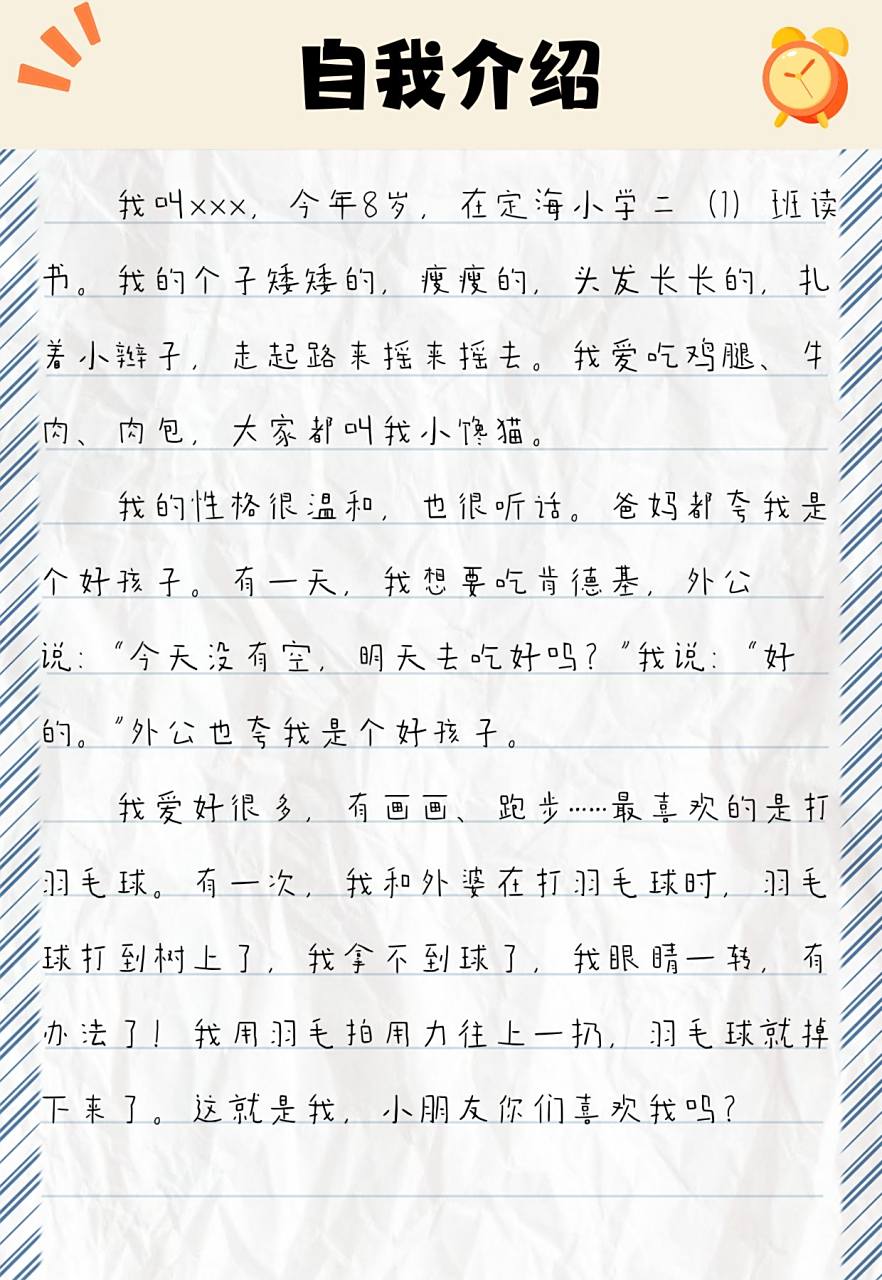 自我介绍
我叫xxx，今年8岁，在定海小学二（1）班读
书。我的个子矮矮的，瘦瘦的，头发长长的，扎
着小辫子，走起路来摇来摇去。我爱吃鸡腿、牛
肉、肉包，大家都叫我小馋猫。
我的性格很温和，也很听话。爸妈都夸我是
个好孩子。有一天，我想要吃肯德基，外公
说：“今天没有空，明天去吃好吗？”我说：“好
的。”外公也夸我是个好孩子。
我爱好很多，有画画、跑步……最喜欢的是打
羽毛球。有一次，我和外婆在打羽毛球时，羽毛
球打到树上了，我拿不到球了，我眼睛一转，有
办法了！我用羽毛拍用力往上一扔，羽毛球就掉
下来了。这就是我，小朋友你们喜欢我吗？